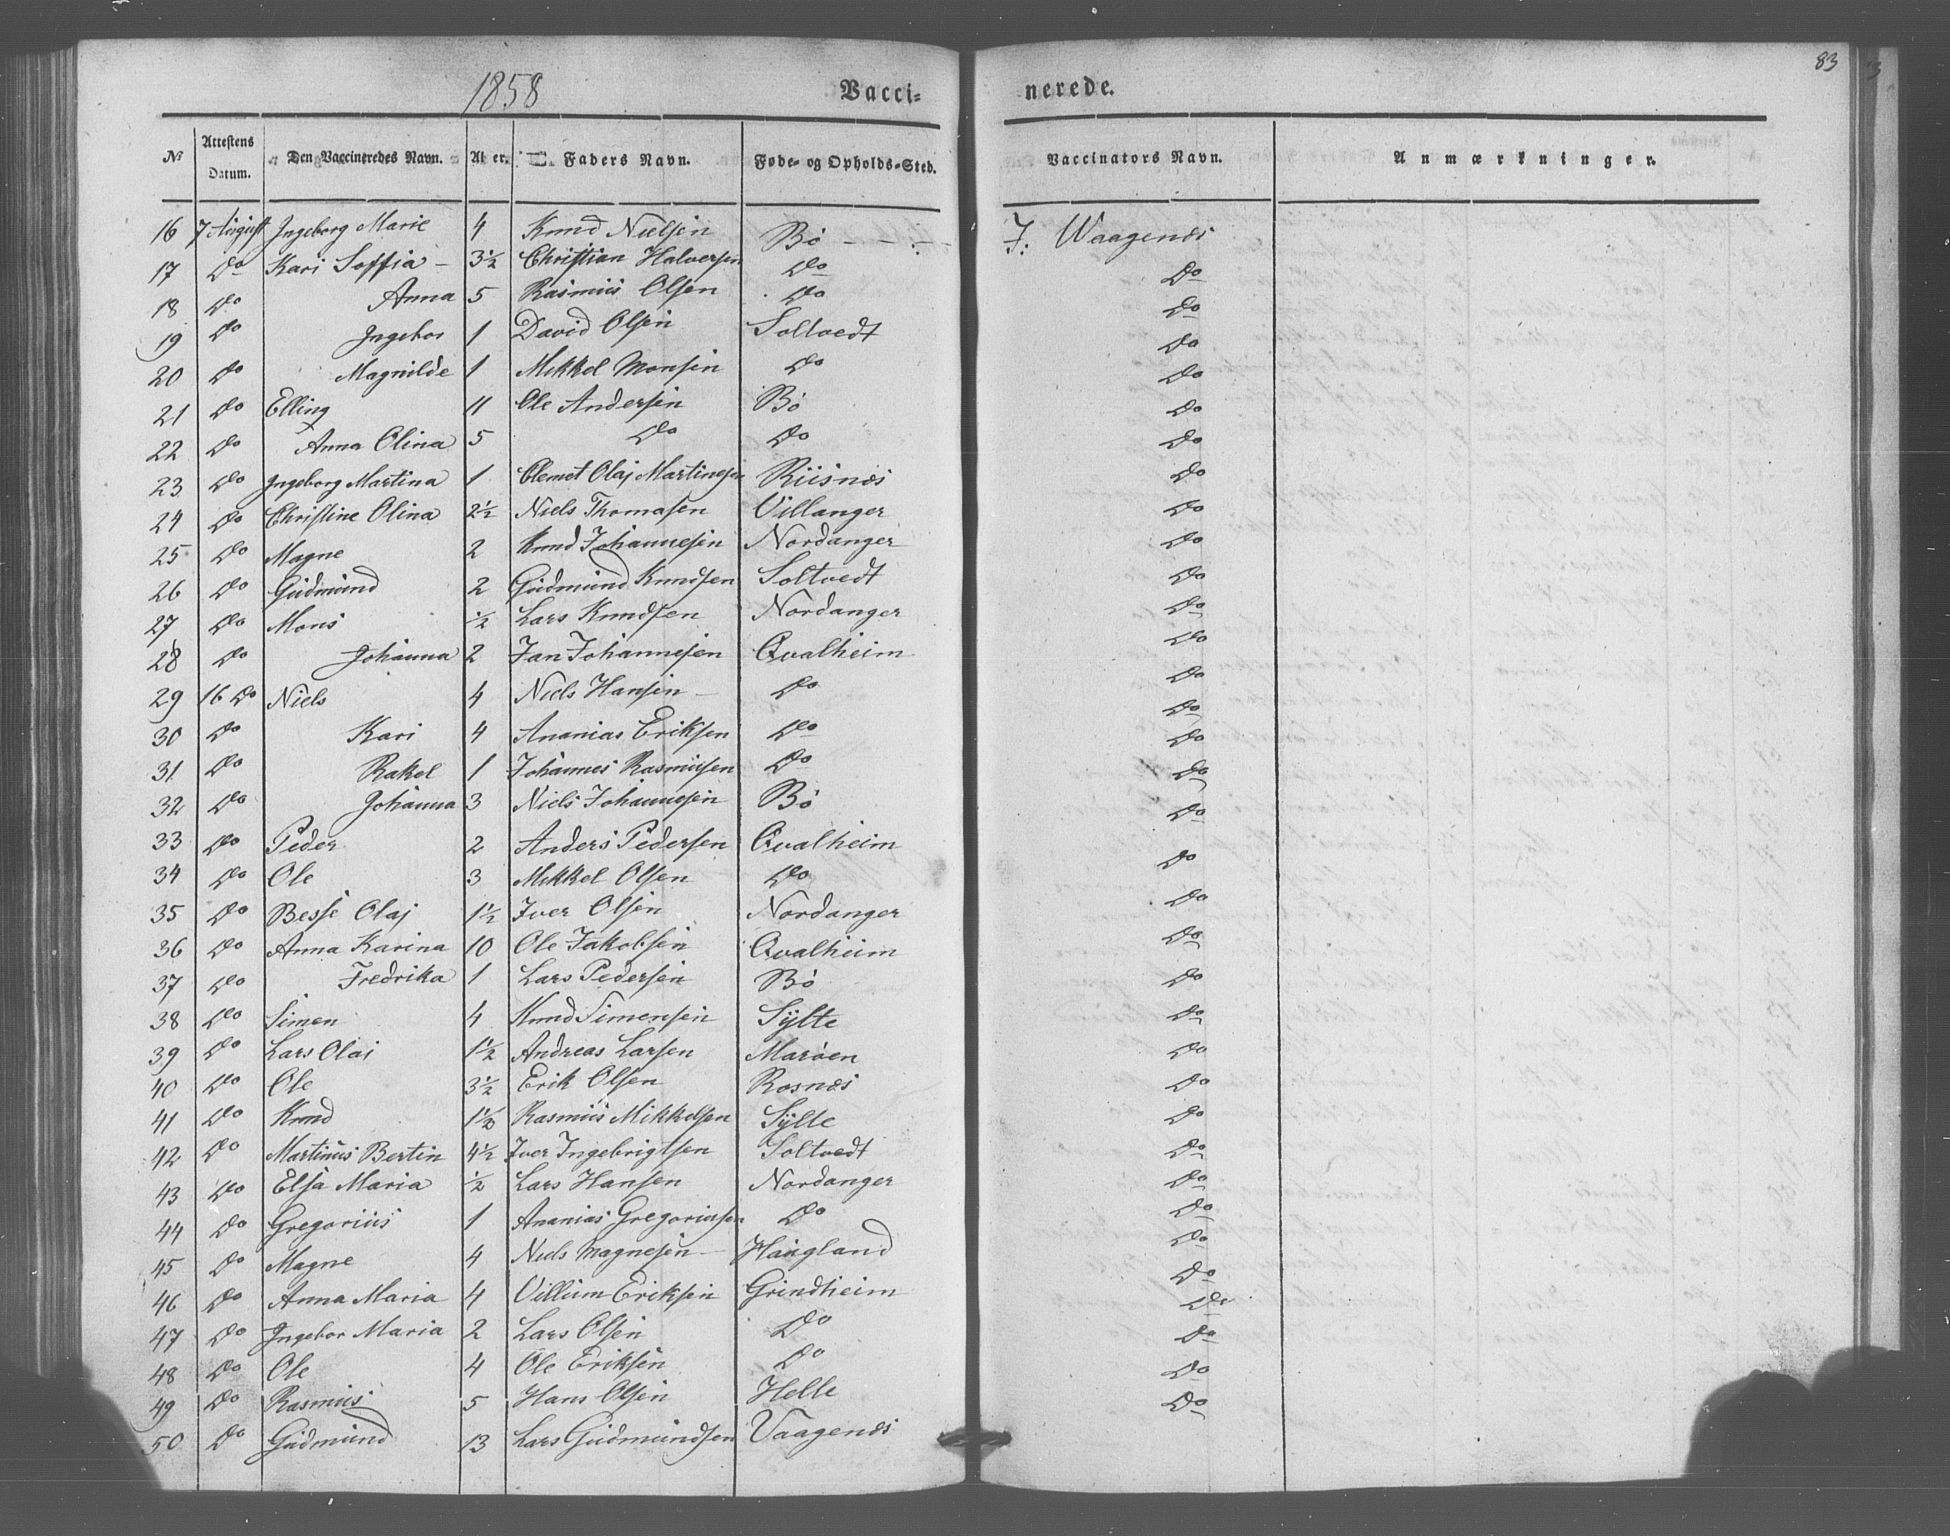 83
1858 Vacci= nerede.
No Attestens Datum. Den Vaccineredes Navn. Alder. Faders Navn. Føde- og Opholds-Sted. Vaccinators Navn. Anmærkninger.
16 7 August Ingeborg Marie 4 Knud Nielsen Bö J: Waagenæs
17 Do Kari Soffia 3½ Christian Halversen Do Do
18 Do Anna 5 Rasmus Olsen Do Do
19 Do Ingebor 1 David Olsen Soltvedt Do
20 Do Magnilde 1 Mikkel Monsen Do Do
21 Do Elling 11 Ole Andersen Bö Do
22 Do Anna Olina 5 Do Do Do
23 Do Ingeborg Martina 1 Clemet Olaj Martinesen Riisnæs Do
24 Do Christine Olina 2½ Niels Thomasen Villanger Do
25 Do Magne 2 Knud Johannesen Nordanger Do
26 Do Gudmund 2 Gudmund Knudsen Soltvedt Do
27 Do Mons ½ Lars Knudsen Nordanger Do
28 Do Johanna 2 Jan Johannesen Qvalheim Do
29 16 Do Niels 4 Niels Hansen Do Do
30 Do Kari 4 Ananias Eriksen Do Do
31 Do Rakel 1 Johannes Rasmusen Do Do
32 Do Johanna 3 Niels Johannesen Bö Do
33 Do Peder 2 Anders Pedersen Qvalheim Do
34 Do Ole 3 Mikkel Olsen Do Do
35 Do Besse Olaj 1½ Iver Olsen Nordanger Do
36 Do Anna Karina 10 Ole Jakobsen Qvalheim Do
37 Do Fredrika 1 Lars Pedersen Bö Do
38 Do Simen 4 Knud Simensen Sylte Do
39 Do Lars Olai 1½ Andreas Larsen Maröen Do
40 Do Ole 3½ Erik Olsen Rosnæs Do
41 Do Knud 1½ Rasmus Mikkelsen Sylte Do
42 Do Martinus Bertin 4½ Iver Ingebrigtsen Soltvedt Do
43 Do Elsa Maria ½ Lars Hansen Nordanger Do
44 Do Gregorius 1 Ananias Gregoriusen Do Do
45 Do Magne 4 Niels Magnesen Haugland Do
46 Do Anna Maria 4 Villum Eriksen Grindheim Do
47 Do Ingebor Maria 2 Lars Olsen Do Do
48 Do Ole 4 Ole Eriksen Do Do
49 Do Rasmus 5 Hans Olsen Helle Do
50 Do Gudmund 13 Lars Gudmundsen Vaagenæs Do